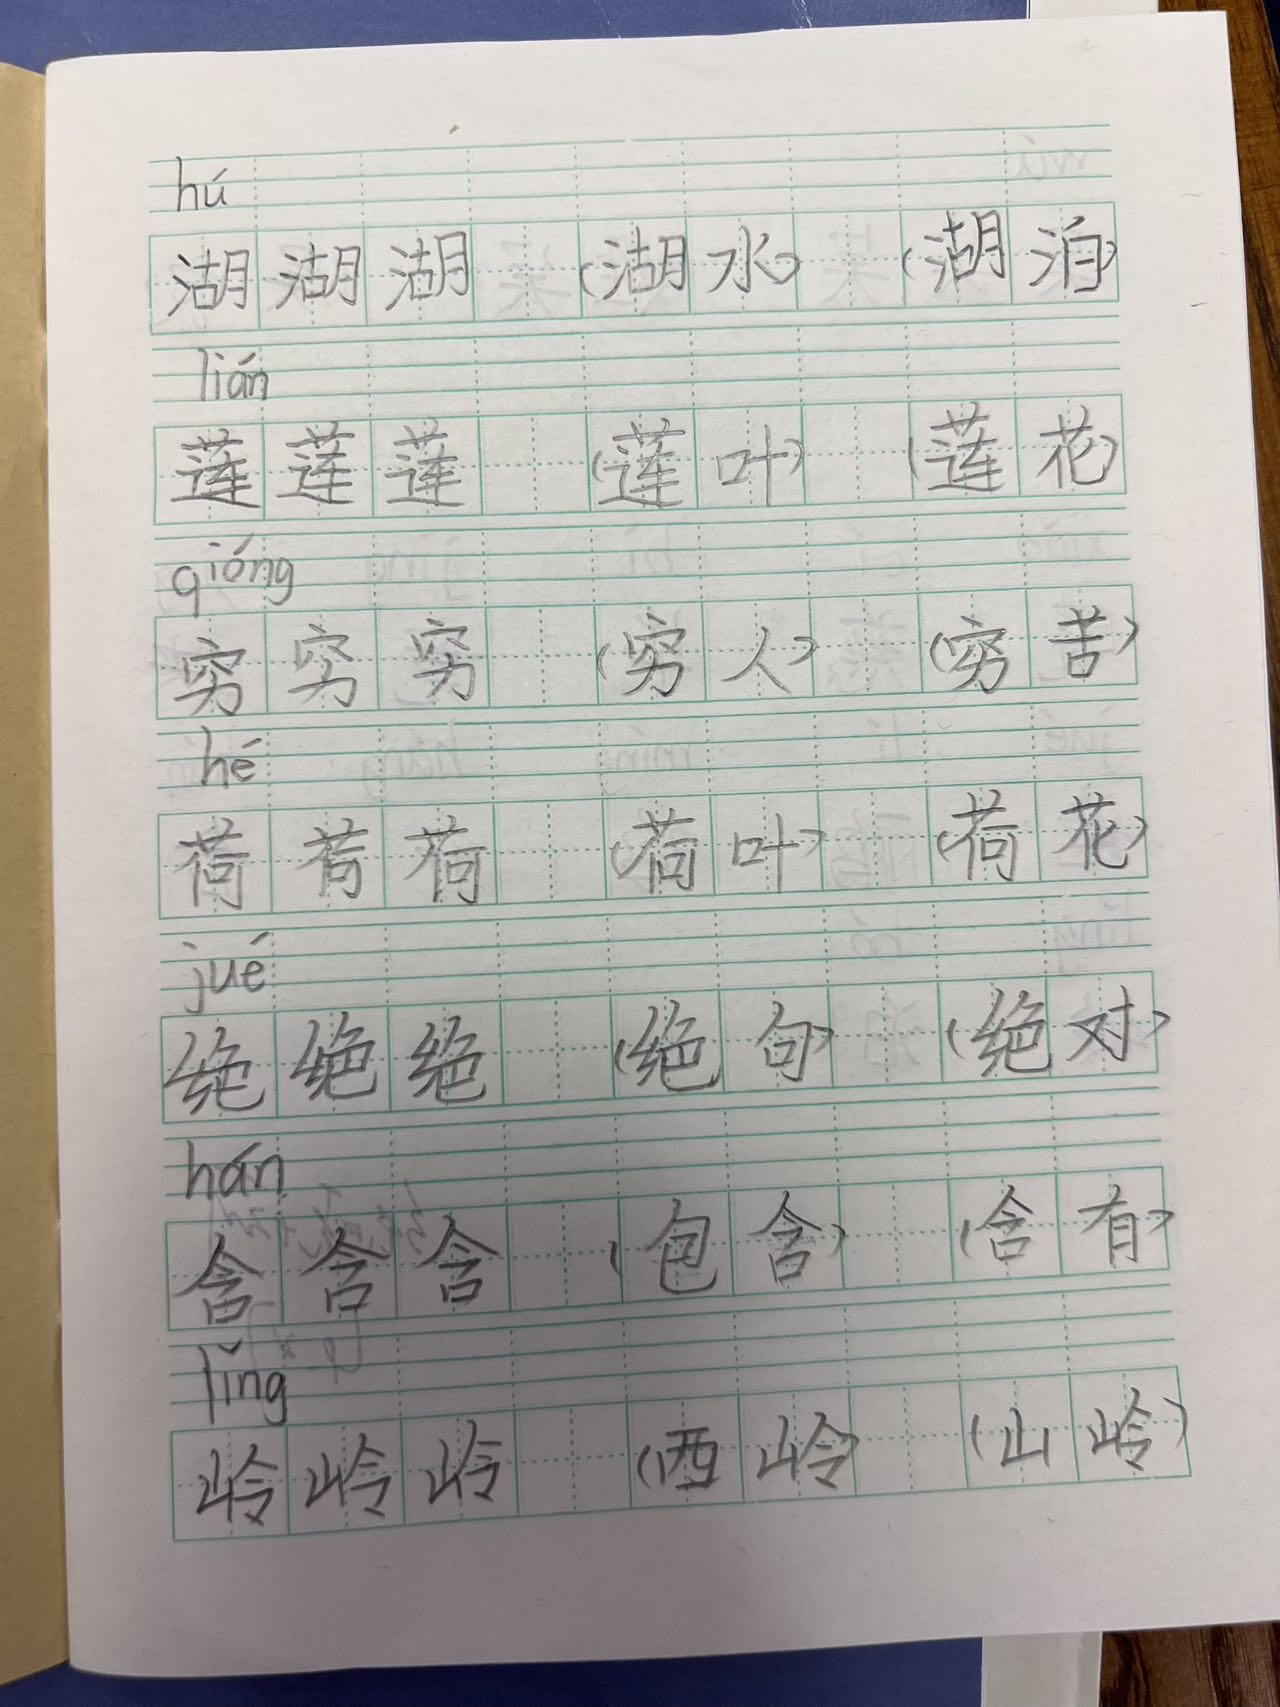 hú
湖湖湖(湖水)(湖泊)
lián
莲莲莲(莲叶)(莲花)
qióng
穷穷穷(穷人)(穷苦)
hé
荷荷荷(荷叶)(荷花)
jué
绝绝绝(绝句)(绝对)
hán
含含含(包含)(含有)
lǐng
岭岭岭(西岭)(山岭)